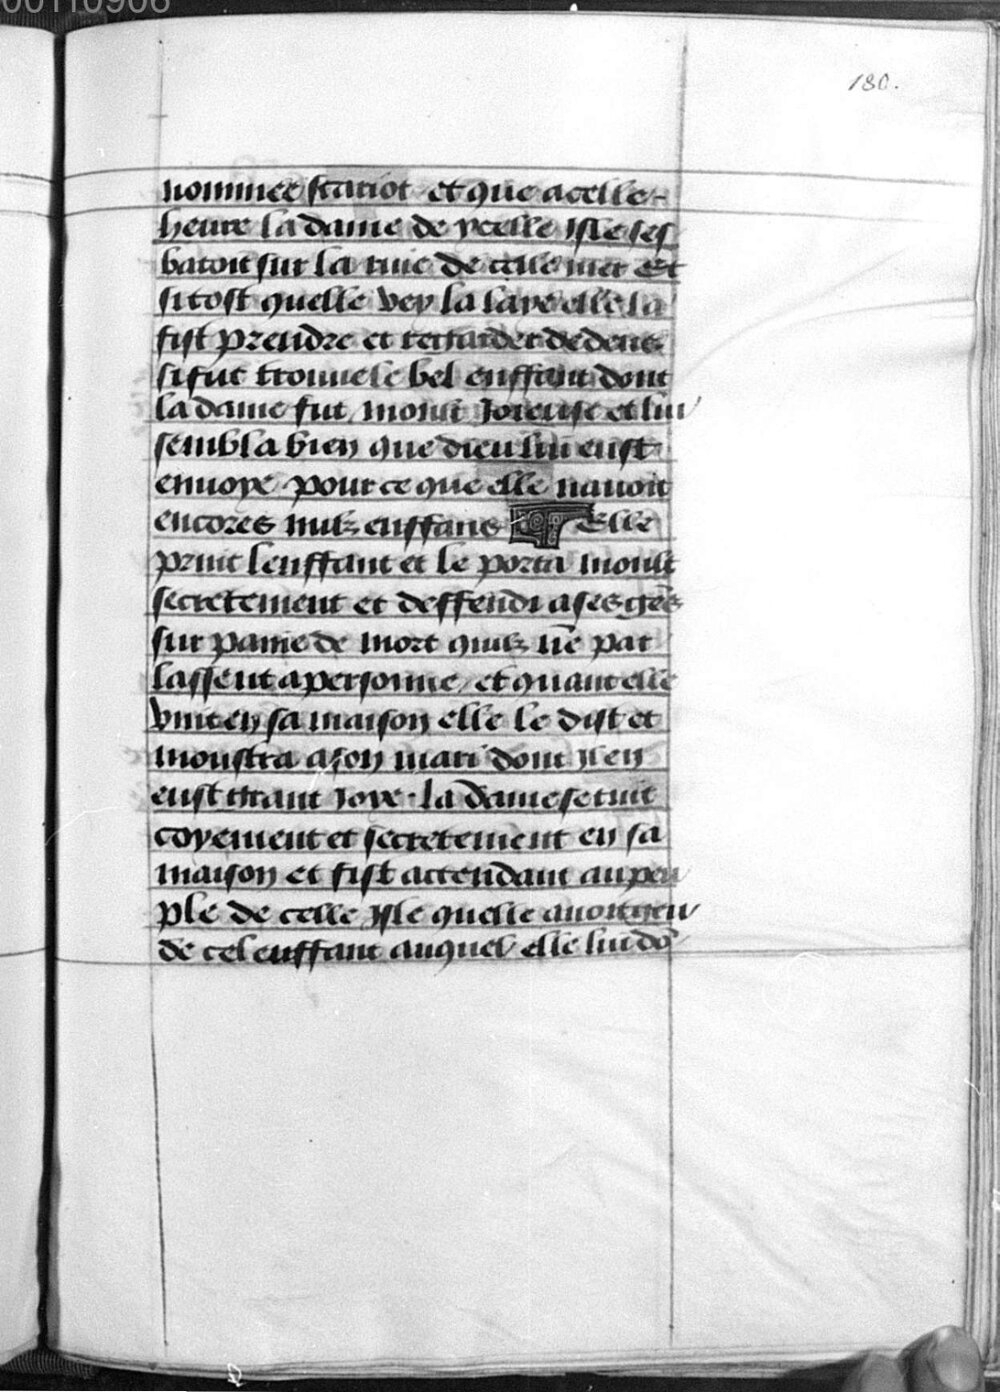 00110906
180.
nommee scariot et que a celle
heure la dame de ycelle isle ses
batoit sur la riue de celle mer Et
si tost quelle vey la laye elle la
fist prendre et regarder dedens
si fut trouue le bel enffant dont
la dame fut moult Joieuse et lui
sembla bien que dieu lui eust
enuoye pour ce que elle nauoit
encores nulz enffans Elle
print lenffant et le porta moult
secretement et deffendi a ses ges̄
sur paine de mort quilz ne par
lassent a personne et quant elle
vint en sa maison elle le dist et
monstra a son mari dont Jl en
eust grant Joye la dame se tint
coyement et secretement en sa
maison et fist attendant au peu
ple de celle Jsle quelle auoit geu
de cel enffant auquel elle lui dō